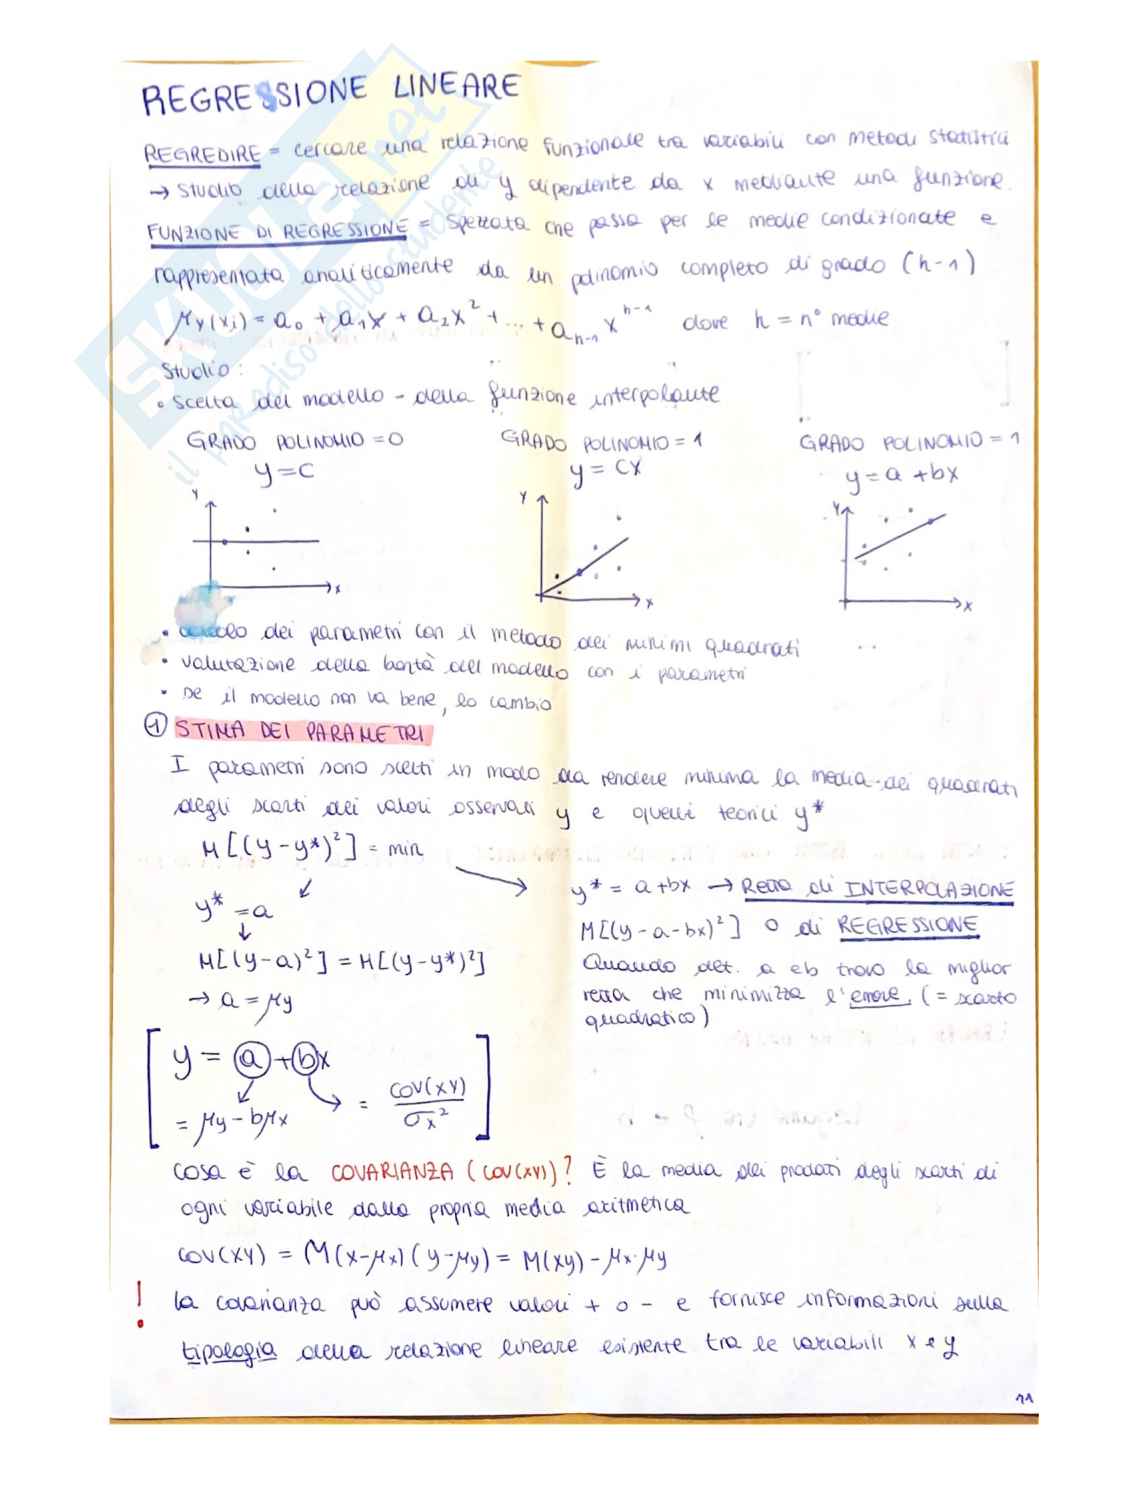 REGRESSIONE LINEARE
REGREDIRE = cercare una relazione funzionale tra variabili con metodi statistici
→ Studio della relazione di y dipendente da x mediante una funzione.
FUNZIONE DI REGRESSIONE = Spezzata che passa per le medie condizionate e
rappresentata analiticamente da un polinomio completo di grado (h-1)
μy(xi) = a₀ + a₁x + a₂x² + ... + aₕ₋₁ xʰ⁻¹ dove h = n° medie
Studio:
• Scelta del modello - della funzione interpolante
GRADO POLINOMIO = 0 GRADO POLINOMIO = 1 GRADO POLINOMIO = 1
y = c y = cx y = a + bx
Y Y Y
x x x
• calcolo dei parametri con il metodo dei minimi quadrati
• valutazione della bontà del modello con i parametri
• se il modello non va bene, lo cambio
① STIMA DEI PARAMETRI
I parametri sono scelti in modo da rendere minima la media dei quadrati
degli scarti dei valori osservati y e quelli teorici y*
M[(y-y*)²] = min
y* = a
M[(y-a)²] = M[(y-y*)²]
→ a = μy
y* = a+bx → Retta di INTERPOLAZIONE
M[(y-a-bx)²] o di REGRESSIONE
Quando det. a e b trovo la miglior
retta che minimizza l'errore, (= scarto
quadratico)
y = a + bx
= μy - bμx = cov(xy) / σx²
Cosa è la COVARIANZA (cov(xy))? È la media dei prodotti degli scarti di
ogni variabile dalla propria media aritmetica
cov(xy) = M(x-μx)(y-μy) = M(xy) - μx·μy
! la covarianza può assumere valori + o - e fornisce informazioni sulla
tipologia della relazione lineare esistente tra le variabili x e y
11
SKUOLA.net
il paradiso dello studente